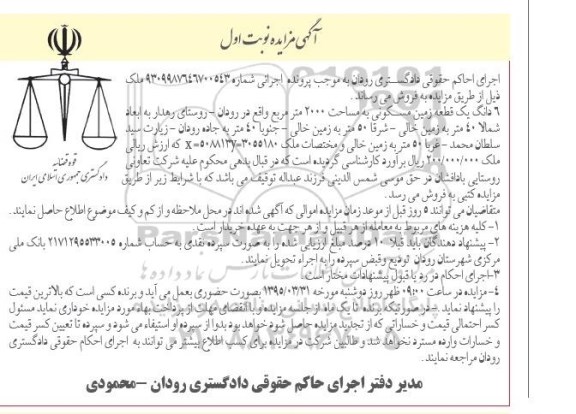 آگهی مزایده نوبت اول
قوه قضائیه
دادگستری جمهوری اسلامی ایران
اجرای احکام حقوقی دادگستری رودان به موجب پرونده اجرائی شماره ۹۳۰۹۹۸۷۶۴۶۷۰۰۵۴۳ ملک
ذیل از طریق مزایده به فروش می رساند.
۶ دانگ یک قطعه زمین مسکونی به مساحت ۲۰۰۰ متر مربع واقع در رودان – روستای رهدار به ابعاد
شمالا ۴۰ متر به زمین خالی – شرقا ۵۰ متر به زمین خالی – جنوبا ۴۰ متر به جاده رودان – زیارت سید
سلطان محمد – غربا ۵۰ متر به زمین خالی و مختصات ملک ۳۰۵۵۱۸۰=x=۵۰۸۸۱۳y که ارزش ریالی
ملک ۲۰۰/۰۰۰/۰۰۰ ریال برآورد کارشناسی گردیده است که در قبال بدهی محکوم علیه شرکت تعاونی
روستایی بادافشان در حق موسی شمس الدینی فرزند عبداله توقیف می باشد که با شرایط زیر از طریق
مزایده کتبی به فروش می رسد.
متقاضیان می توانند ۵ روز قبل از موعد زمان مزایده اموالی که آگهی شده اند در محل ملاحظه و از کم و کیف موضوع اطلاع حاصل نمایند.
۱- کلیه هزینه های مربوط به معامله از هر قبیل و از هر جهت به عهده خریدار است
۲- پیشنهاد دهندگان باید قبلا ۱۰ درصد مبلغ ارزیابی شده را به صورت سپرده نقدی به حساب شماره ۲۱۷۱۲۹۵۵۳۳۰۰۵ بانک ملی
مرکزی شهرستان رودان تودیع و قبض سپرده را به اجراء تحویل نمایند.
۳-اجرای احکام در رد یا قبول پیشنهادات مختار است.
۴- مزایده در ساعت ۰۹:۰۰ ظهر روز دوشنبه مورخه ۱۳۹۵/۰۳/۳۱ بصورت حضوری بعمل می آید و برنده کسی است که بالاترین قیمت
را پیشنهاد نماید . در صورتیکه برنده تا یک ماه از جلسه مزایده و با انقضای مهلت از پرداخت بهاء مورد مزایده خودداری نماید مسئول
کسر احتمالی قیمت و خساراتی که از تجدید مزایده حاصل شود خواهد بود بدوا از سپرده او استیفاء می شود و سپرده تا تعیین کسر قیمت
و خسارات وارده مسترد نخواهد شد و طالبین شرکت در مزایده برای کسب اطلاع بیشتر می توانند به اجرای احکام حقوقی دادگستری
رودان مراجعه نمایند.
مدیر دفتر اجرای حاکم حقوقی دادگستری رودان –محمودی